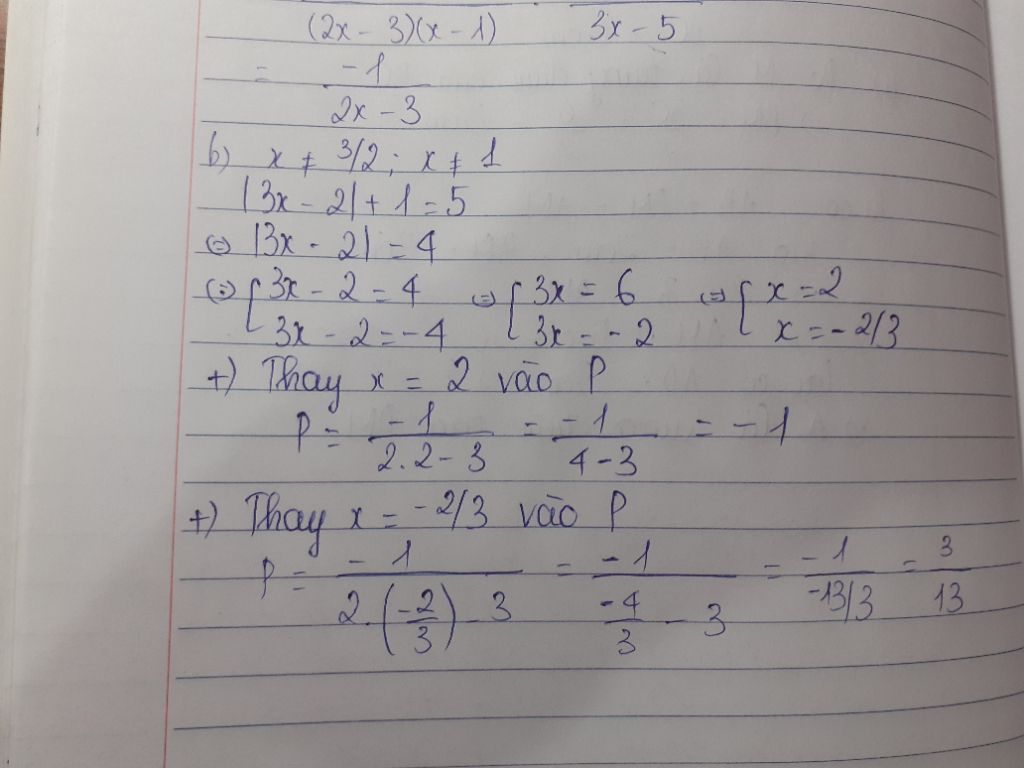 (2x - 3)(x - 1) 3x - 5
= -1 / 2x - 3
b) x ≠ 3/2 ; x ≠ 1
|3x - 2| + 1 = 5
⇔ |3x - 2| = 4
⇔ [ 3x - 2 = 4 ⇔ [ 3x = 6 ⇔ [ x = 2
3x - 2 = -4 3x = -2 x = -2/3
+) Thay x = 2 vào P
P = -1 / 2.2 - 3 = -1 / 4 - 3 = -1
+) Thay x = -2/3 vào P
P = -1 / 2.(-2/3) - 3 = -1 / -4/3 - 3 = -1 / -13/3 = 3/13